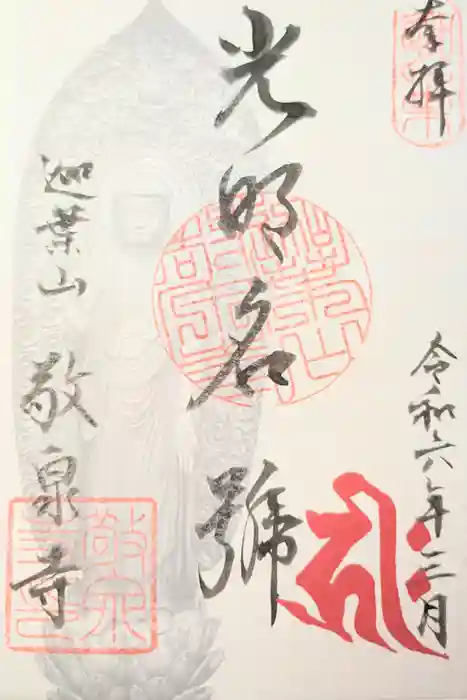 奉拝
令和六年三月
光明名號
迦葉山
敬泉寺